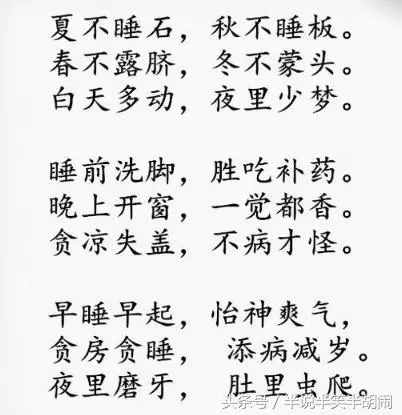 夏不睡石，秋不睡板。
春不露脐，冬不蒙头。
白天多动，夜里少梦。
睡前洗脚，胜吃补药。
晚上开窗，一觉都香。
贪凉失盖，不病才怪。
早睡早起，怡神爽气，
贪房贪睡，添病减岁。
夜里磨牙，肚里虫爬。
头条号／半说半笑半胡闹